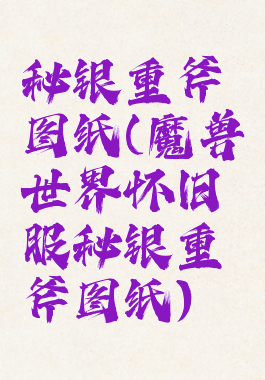 秘银重斧
图纸(魔兽
世界怀旧
服秘银重
斧图纸)